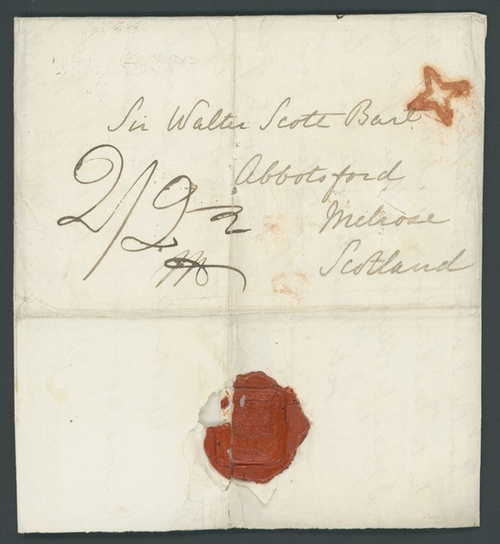 Sir Walter Scott Bart
Abbotsford
2/2
Melrose
Scotland